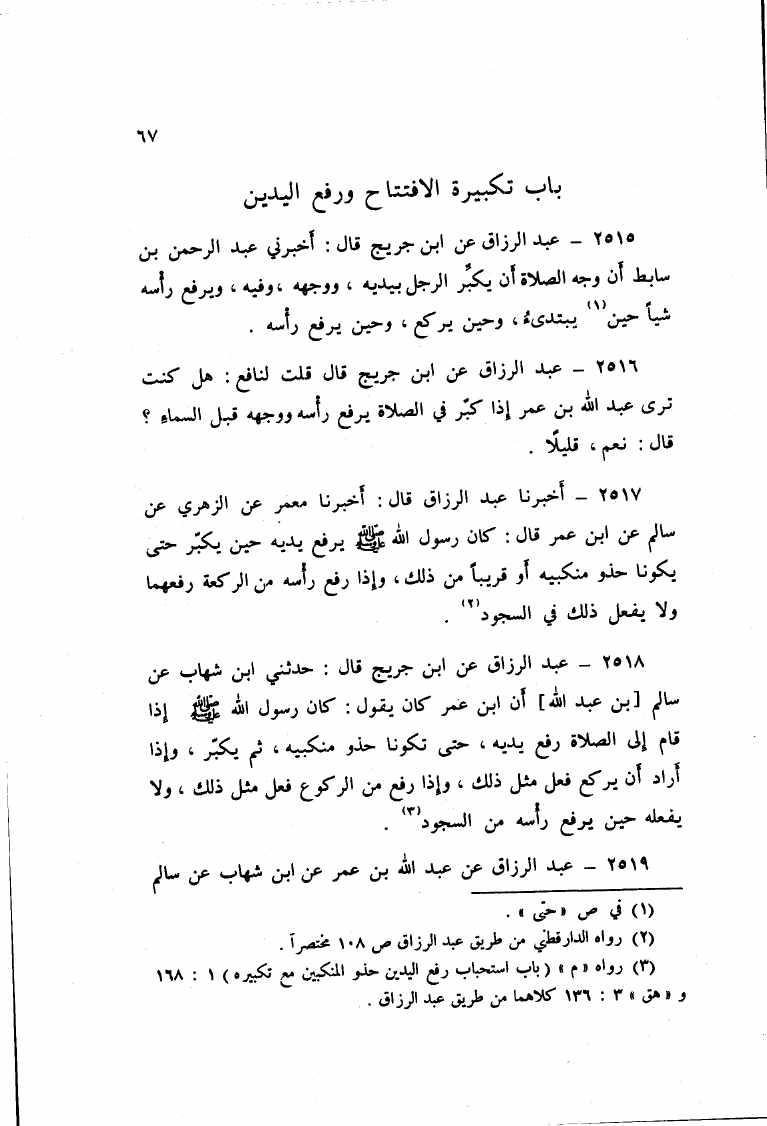 ٦٧
باب تكبيرة الافتتاح ورفع اليدين
٢٥١٥ – عبد الرزاق عن ابن جريج قال : أخبرني عبد الرحمن بن
سابط أن وجه الصلاة أن يكبِّر الرجل بيديه ، ووجهه ،وفيه ، ويرفع رأسه
شيأً حين(١) يبتدىءُ ، وحين يركع ، وحين يرفع رأسه .
٢٥١٦ – عبد الرزاق عن ابن جريج قال قلت لنافع : هل كنت
ترى عبد الله بن عمر إذا كبّر في الصلاة يرفع رأسه ووجهه قبل السماء ؟
قال : نعم ، قليلًا .
٢٥١٧ – أخبرنا عبد الرزاق قال : أخبرنا معمر عن الزهري عن
سالم عن ابن عمر قال : كان رسول الله ﷺ يرفع يديه حين يكبّر حتى
يكونا حذو منكبيه أو قريباً من ذلك ، وإذا رفع رأسه من الركعة رفعهما
ولا يفعل ذلك في السجود(٢) .
٢٥١٨ – عبد الرزاق عن ابن جريج قال : حدثني ابن شهاب عن
سالم [بن عبد الله] أن ابن عمر كان يقول : كان رسول الله ﷺ إذا
قام إلى الصلاة رفع يديه ، حتى تكونا حذو منكبيه ، ثم يكبّر ، وإذا
أراد أن يركع فعل مثل ذلك ، وإذا رفع من الركوع فعل مثل ذلك ، ولا
يفعله حين يرفع رأسه من السجود(٣) .
٢٥١٩ – عبد الرزاق عن عبد الله بن عمر عن ابن شهاب عن سالم
(١) في ص «حتّى» .
(٢) رواه الدارقطني من طريق عبد الرزاق ص ١٠٨ مختصراً .
(٣) رواه «م» (باب استحباب رفع اليدين حذو المنكبين مع تكبيره) ١ : ١٦٨
و «هق» ٣ : ١٣٦ كلاهما من طريق عبد الرزاق .